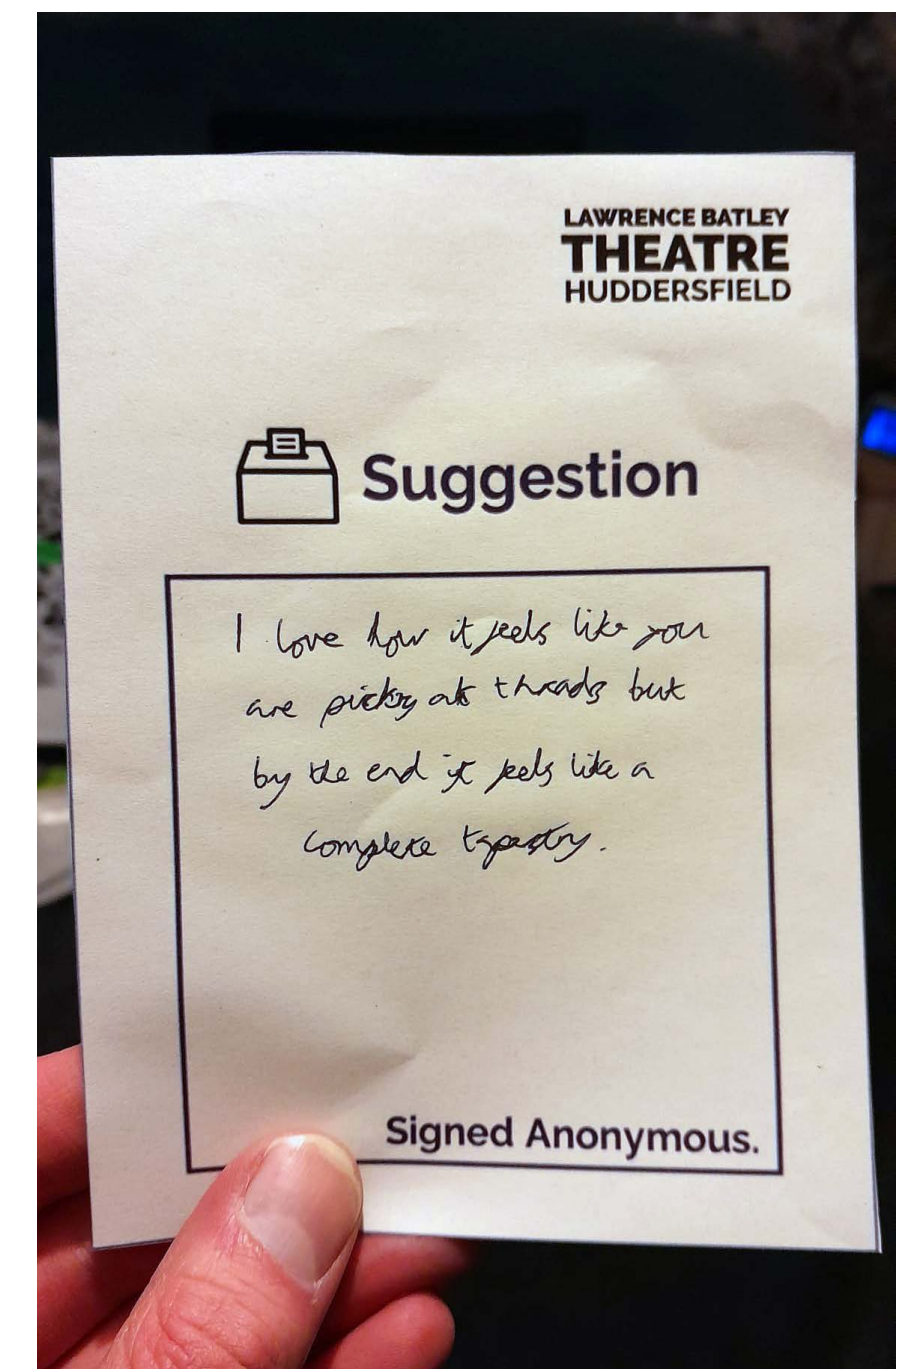 LAWRENCE BATLEY
THEATRE
HUDDERSFIELD
Suggestion
I love how it feels like you
are picking at threads but
by the end it feels like a
complete tapestry.
Signed Anonymous.